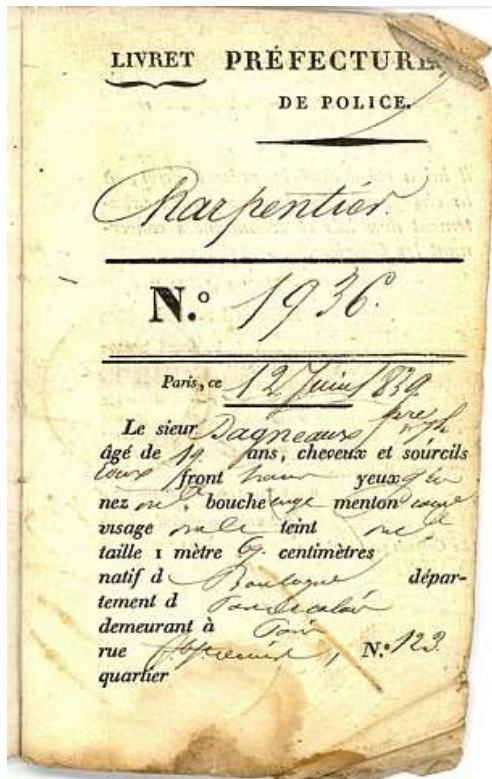 LIVRET PRÉFECTURE
DE POLICE.
Charpentier.
N.º 1936.
Paris, ce 12 Juin 1839.
Le sieur Dagneaux
âgé de 19 ans, cheveux et sourcils
front haut yeux
nez bouche menton
visage ovale teint
taille 1 mètre 69 centimètres
natif d Boulogne dépar-
tement d Pas de calais
demeurant à Paris
rue N.º 123
quartier